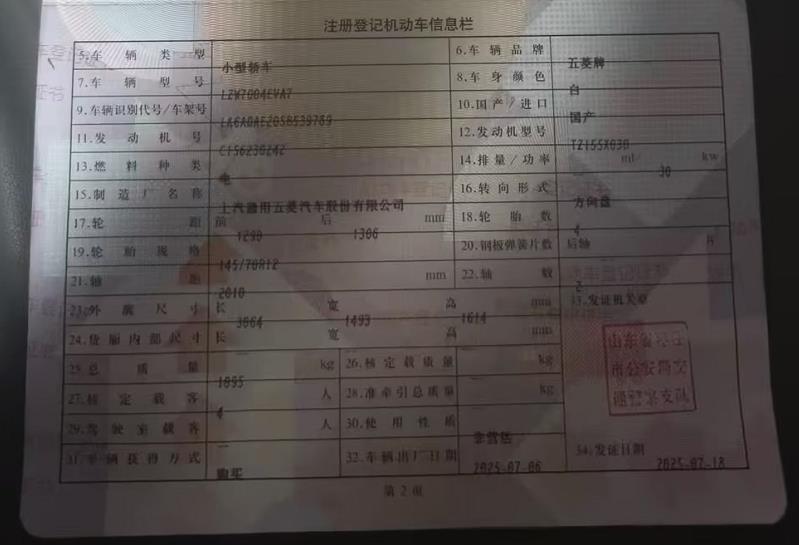 注册登记机动车信息栏
5.车辆类型 小型轿车 6.车辆品牌 五菱牌
7.车辆型号 LZW7004EVA7 8.车身颜色 白
9.车辆识别代号/车架号 10.国产/进口 国产
11.发动机号 C156230242 12.发动机型号 TZ155X030
13.燃料种类 电 14.排量/功率 ml/ 30 kw
15.制造厂名称 上汽通用五菱汽车股份有限公司 16.转向形式 方向盘
17.轮距 前 1290 后 1306 mm 18.轮胎数 4
19.轮胎规格 145/70R12 20.钢板弹簧片数 后轴 片
21.轴距 2010 mm 22.轴数 2
23.外廓尺寸 长 3064 宽 1493 高 1614 mm 33.发证机关章
24.货厢内部尺寸 长 宽 高 mm
25.总质量 1095 kg 26.核定载质量 kg
27.核定载客 4 人 28.准牵引总质量 kg
29.驾驶室载客 人 30.使用性质 非营运
31.车辆获得方式 购买 32.车辆出厂日期 2025-07-06 34.发证日期 2025-07-18
山东省
市公安局交
通警察支队
第2页